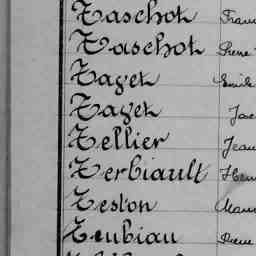 Taschot Fran
Taschot Irene
Tayet Emile
Tayet Jose
Tellier Jean
Terbiault Hen
Teston Mau
Teubiau Pierre